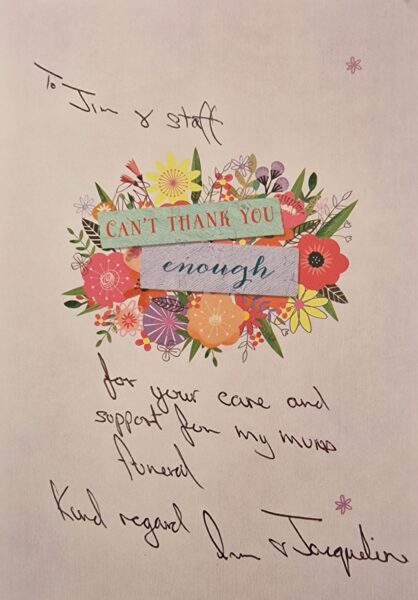 To Jim & Staff
CAN'T THANK YOU
enough
for your care and
support for my mums
funeral
Kind regard
& Jacqueline